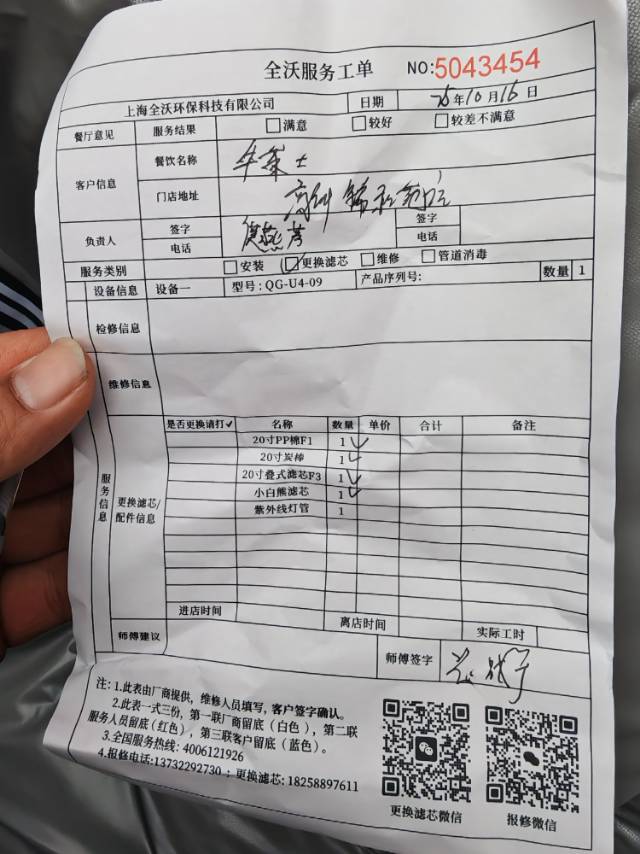 全沃服务工单 NO:5043454
上海全沃环保科技有限公司 日期 25年10月16日
餐厅意见 服务结果 满意 较好 较差不满意
客户信息 餐饮名称 牛莱士
门店地址
负责人 签字 签字
电话 电话
服务类别 安装 更换滤芯 维修 管道消毒
设备信息 设备一 型号:QG-U4-09 产品序列号: 数量 1
检修信息
维修信息
服务信息
更换滤芯/配件信息
是否更换请打✓ 名称 数量 单价 合计 备注
20寸PP棉F1 1 ✓
20寸炭棒 1 ✓
20寸叠式滤芯F3 1 ✓
小白熊滤芯 1 ✓
紫外线灯管 1
进店时间 离店时间 实际工时
师傅建议 师傅签字
注: 1.此表由厂商提供，维修人员填写，客户签字确认。
2.此表一式三份，第一联厂商留底（白色），第二联
服务人员留底(红色)，第三联客户留底（蓝色）。
3.全国服务热线: 4006121926
4.报修电话:13732292730；更换滤芯: 18258897611
更换滤芯微信 报修微信